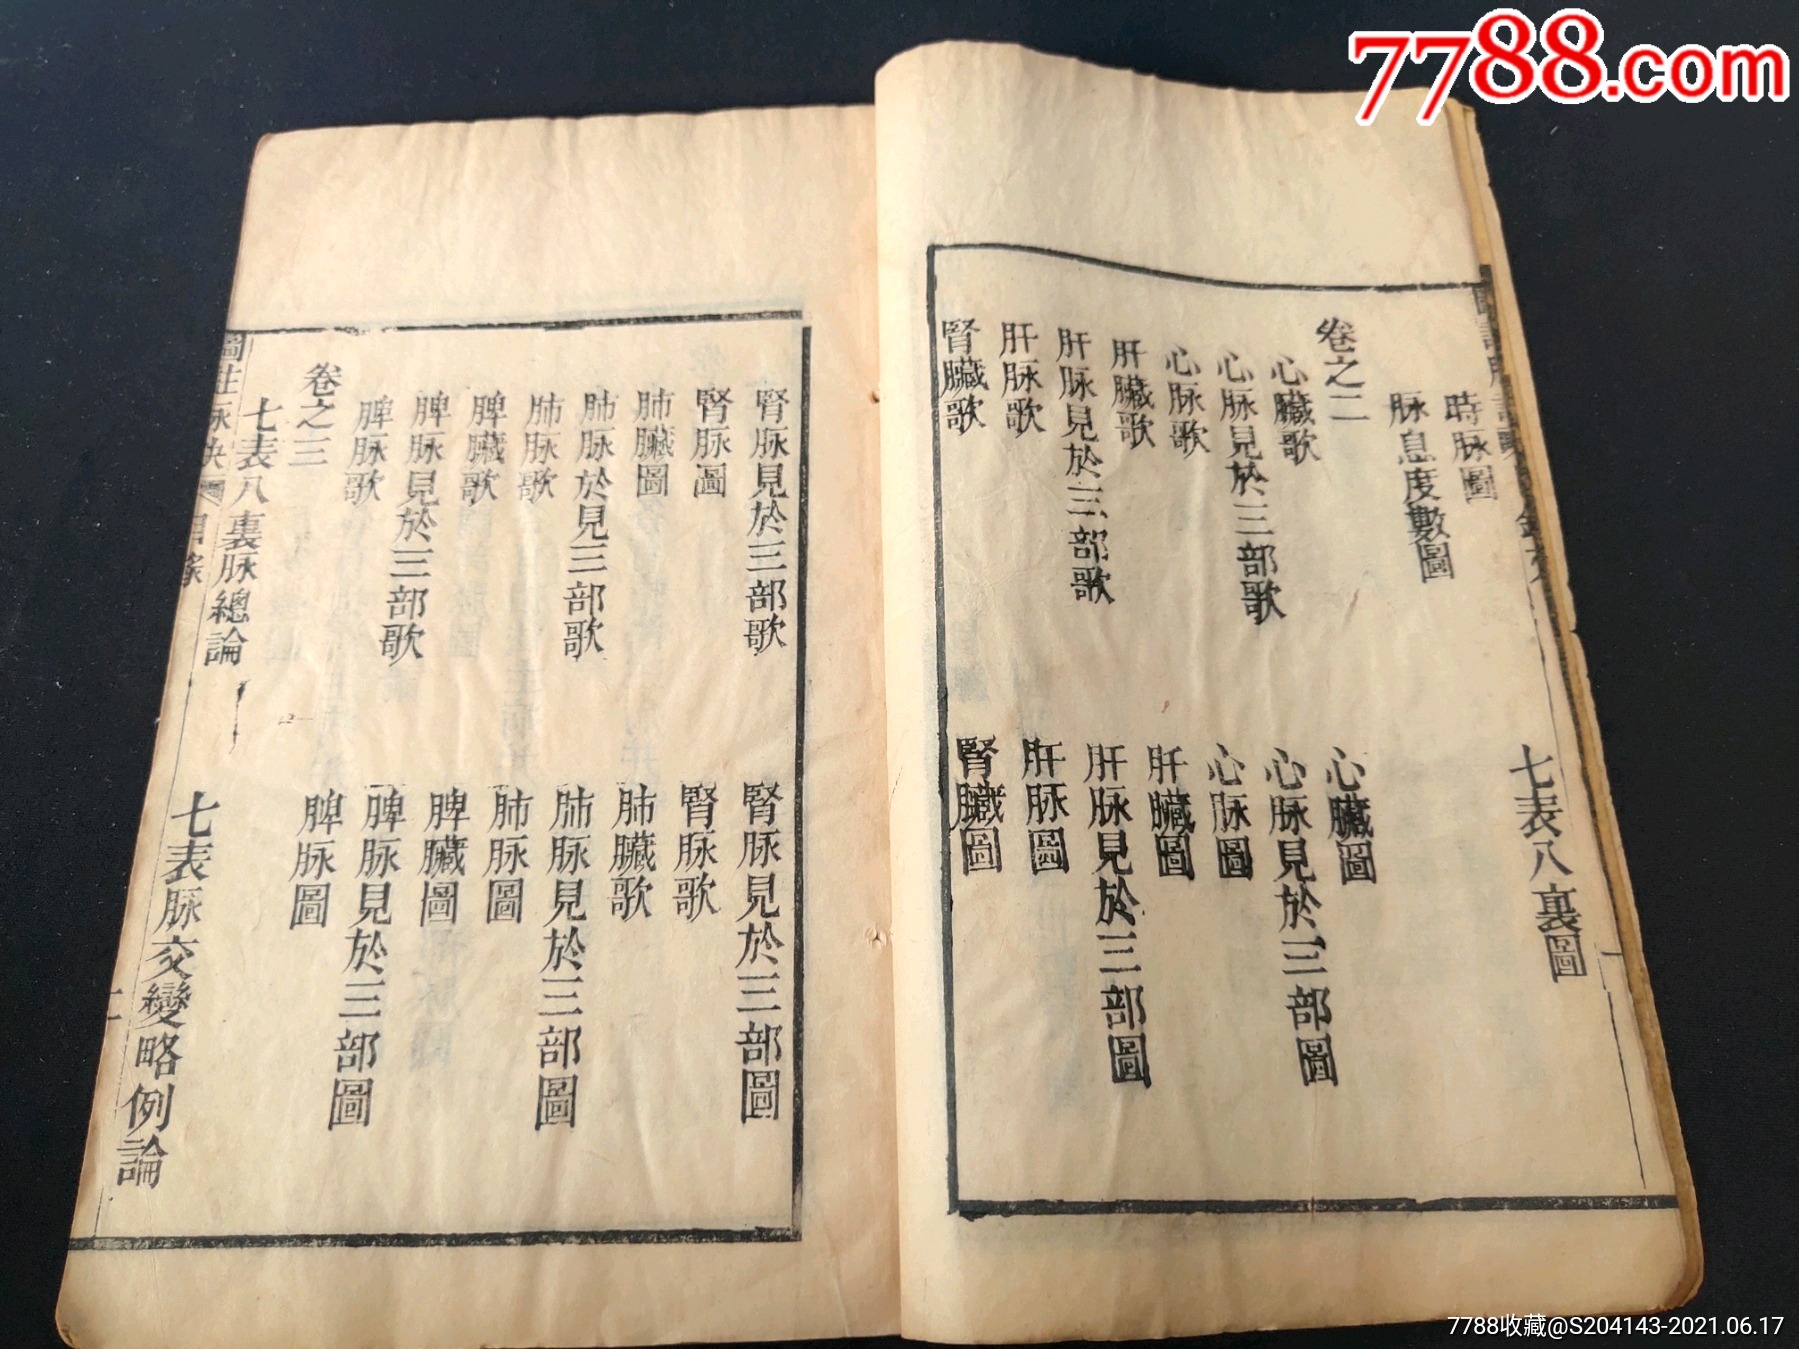 7788.com
時脉圖 七表八裏圖
脉息度數圖
卷之二
心臟歌 心臟圖
心脉見於三部歌 心脉見於三部圖
心脉歌 心脉圖
肝臟歌 肝臟圖
肝脉見於三部歌 肝脉見於三部圖
肝脉歌 肝脉圖
腎臟歌 腎臟圖
腎脉見於三部歌 腎脉見於三部圖
腎脉圖 腎脉歌
肺臟圖 肺臟歌
肺脉於見三部歌 肺脉見於三部圖
肺脉歌 肺脉圖
脾臟歌 脾臟圖
脾脉見於三部歌 脾脉見於三部圖
脾脉歌 脾脉圖
卷之三
七表八裏脉總論 七表脉交變略例論
7788收藏@S204143-2021.06.17